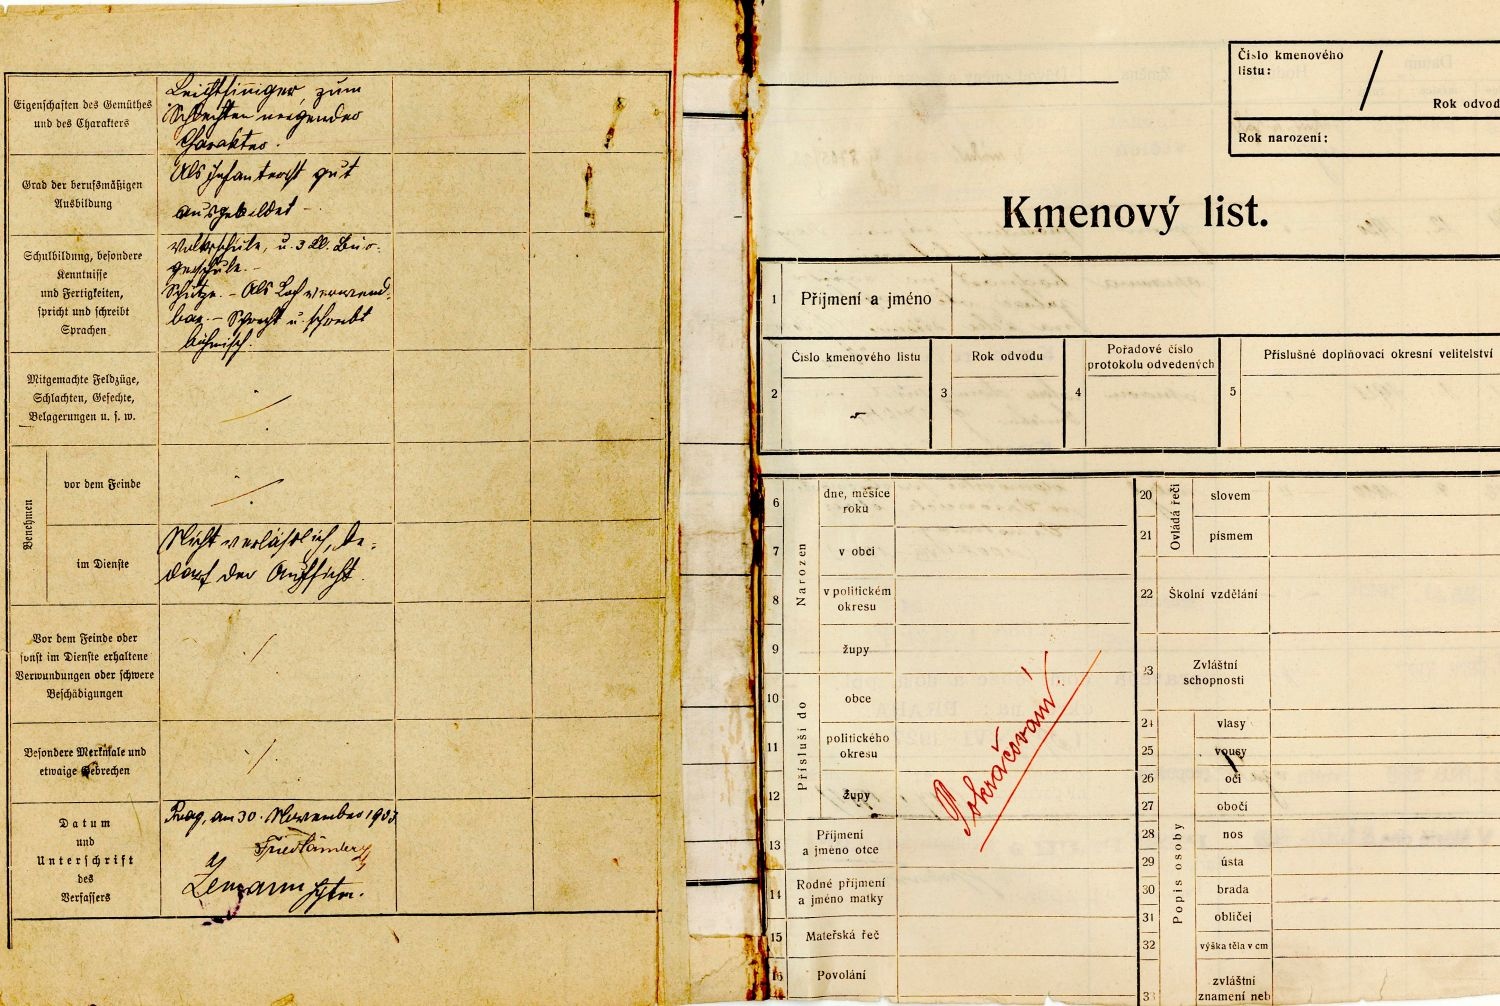 Eigenschaften des Gemüthes
und des Charakters
Leichtsinniger, zum
Schlechten neigender
Charakter.
Grad der berufsmäßigen
Ausbildung
Als Infanterist gut
ausgebildet –
Schulbildung, besondere
Kenntnisse
und Fertigkeiten,
spricht und schreibt
Sprachen
Volksschule, u. 3 Kl. Bür-
gerschule. –
Schütze. – Als Koch verwend-
bar. – Spricht u. schreibt
böhmisch.
Mitgemachte Feldzüge,
Schlachten, Gefechte,
Belagerungen u. s. w.
Benehmen
vor dem Feinde
im Dienste
Nicht verläßlich, be-
darf der Aufsicht.
Vor dem Feinde oder
sonst im Dienste erhaltene
Verwundungen oder schwere
Beschädigungen
Besondere Merkmale und
etwaige Gebrechen
Datum
und
Unterschrift
des
Verfassers
Prag, am 30. November 1903
Číslo kmenového
listu:
Rok odvod
Rok narození:
Kmenový list.
1 Příjmení a jméno
2 Číslo kmenového listu
3 Rok odvodu
4 Pořadové číslo
protokolu odvedených
5 Příslušné doplňovací okresní velitelství
Narozen
6 dne, měsíce
roku
7 v obci
8 v politickém
okresu
9 župy
Přísluší do
10 obce
11 politického
okresu
12 župy
13 Příjmení
a jméno otce
14 Rodné příjmení
a jméno matky
15 Mateřská řeč
16 Povolání
Pokračování.
Ovládá řeči
20 slovem
21 písmem
22 Školní vzdělání
23 Zvláštní
schopnosti
Popis osoby
24 vlasy
25 vousy
26 oči
27 obočí
28 nos
29 ústa
30 brada
31 obličej
32 výška těla v cm
33 zvláštní
znamení neb